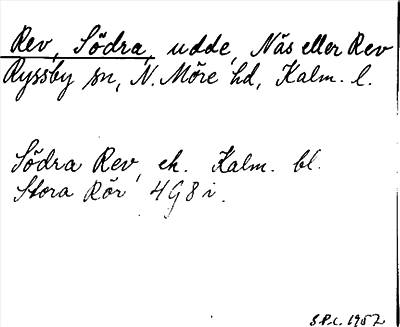 Rev, Södra, udde, Näs eller Rev
Ryssby sn, N. Möre hd, Kalm. l.
Södra Rev, ek. Kalm. bl.
Stora Rör 4G8i.
S.P.c. 1952